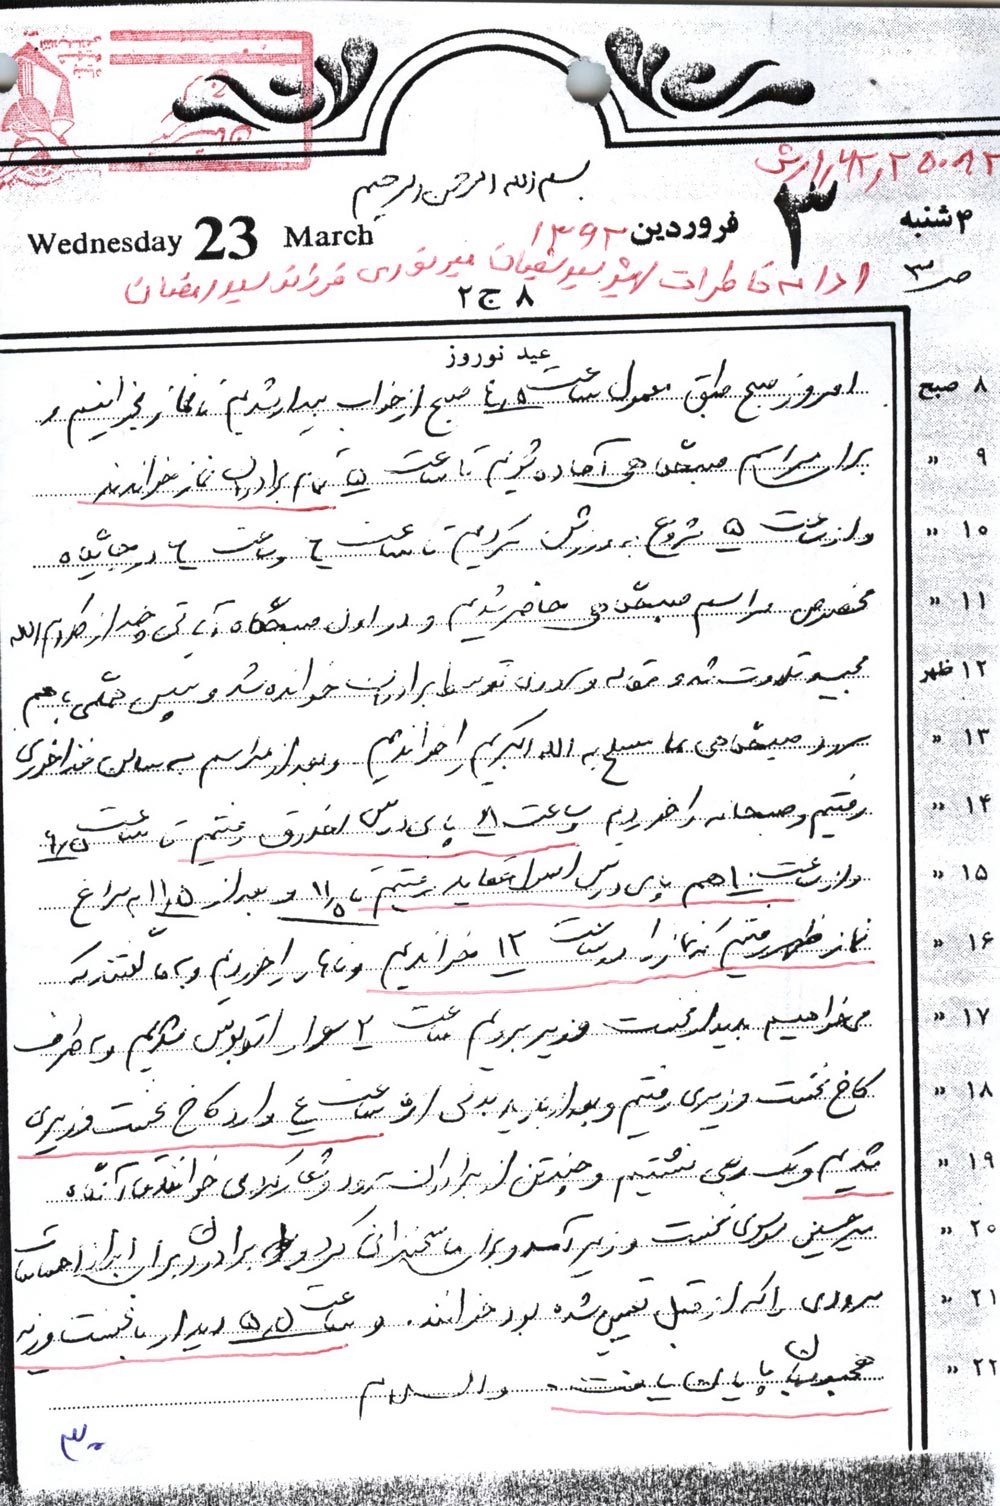 بسم الله الرحمن الرحیم
۴ شنبه
۳
فروردین ۱۳۶۲
Wednesday 23 March
ص ۳
ادامه خاطرات شهید سید سفیان میرنوری فرزند سید رمضان
۸ ج ۲
عید نوروز
۸ صبح
امروز صبح طبق معمول ساعت ۴/۵ صبح از خواب بیدار شدیم تا نماز بخوانیم و
۹ "
برای مراسم صبحگاهی آماده شویم تا ساعت ۵ تمام برادران نماز خواندند
۱۰ "
و از ساعت ۵ شروع به ورزش کردیم تا ساعت ۶ و ساعت ۶ در جایگاه
۱۱ "
مخصوص مراسم صبحگاهی حاضر شدیم و در اول صبحگاه آیاتی چند از کلام الله
۱۲ ظهر
مجید تلاوت شد و مقاله و سرود توسط برادران خوانده شد و سپس همگی باهم
۱۳ "
سرود صبحگاهی ما مسلح به الله اکبریم را خواندیم و بعد از مراسم به سالن غذاخوری
۱۴ "
رفتیم و صبحانه را خوردیم و ساعت ۸ پای درس اخلاق رفتیم تا ساعت ۹/۵
۱۵ "
و از ساعت ۱۰ هم پای درس اصول عقاید رفتیم تا ۱۱/۵ و بعد از ۱۱/۵ به سراغ
۱۶ "
نماز ظهر رفتیم که نماز را در ساعت ۱۲ خواندیم و ناهار را خوردیم و به ما گفتند که
۱۷ "
می‌خواهیم بدیدار نخست وزیر برویم ساعت ۲ سوار اتوبوس شدیم و به طرف
۱۸ "
کاخ نخست وزیری رفتیم و بعد از بازرسی بدنی از ما ساعت ۴ وارد کاخ نخست وزیری
۱۹ "
شدیم و یک ربعی نشستیم و چند تن از برادران سرود و شعار خواندند تا آنگاه
۲۰ "
میرحسین موسوی نخست وزیر آمد و برای ما سخنرانی کرد و برادران برای ابراز احساسات
۲۱ "
سرودی را که از قبل تعیین شده بود خواندند. و ساعت ۵/۵ دیدار با نخست وزیر
۲۲ "
محبوبمان پایان یافت. والسلام
۳۰